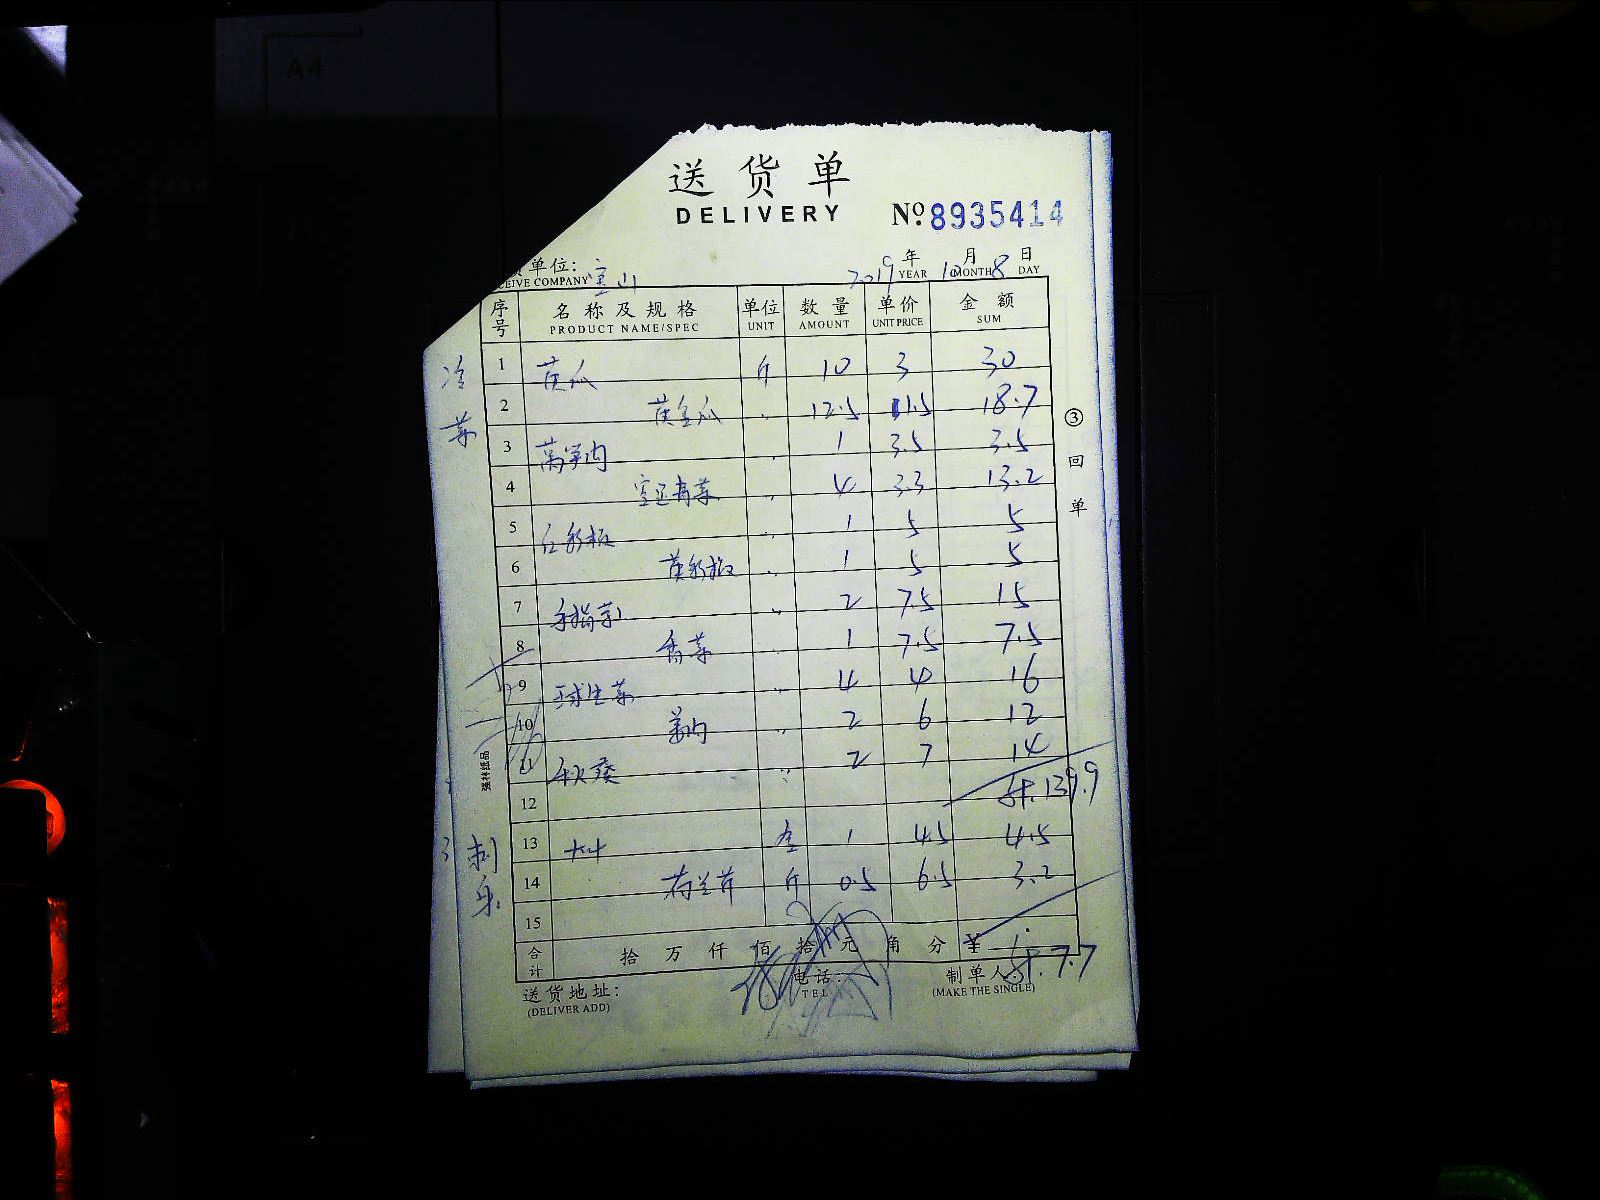 A4
送货单
DELIVERY
№ 8935414
单位: 宝山
CEIVE COMPANY
2019 年 10 月 8 日
YEAR MONTH DAY
序号 名称及规格 单位 数量 单价 金额
PRODUCT NAME/SPEC UNIT AMOUNT UNIT PRICE SUM
冷菜
1 黄瓜 斤 10 3 30
2 黄金瓜 〃 12.5 1.5 18.7
3 莴笋肉 〃 1 3.5 3.5
4 青菜 〃 4 3.3 13.2
5 红彩椒 〃 1 5 5
6 黄彩椒 〃 1 5 5
7 〃 2 7.5 15
8 香菜 〃 1 7.5 7.5
9 球生菜 〃 4 4 16
10 姜肉 〃 2 6 12
11 秋葵 〃 2 7 14
12 计.139.9
13 1 4.5 4.5
14 荷兰芹 斤 0.5 6.5 3.2
15
合计 拾万仟佰拾元角分 ¥
计.7.7
③回单
强林纸品
送货地址:
(DELIVER ADD)
电话:
TEL
制单人:
(MAKE THE SINGLE)